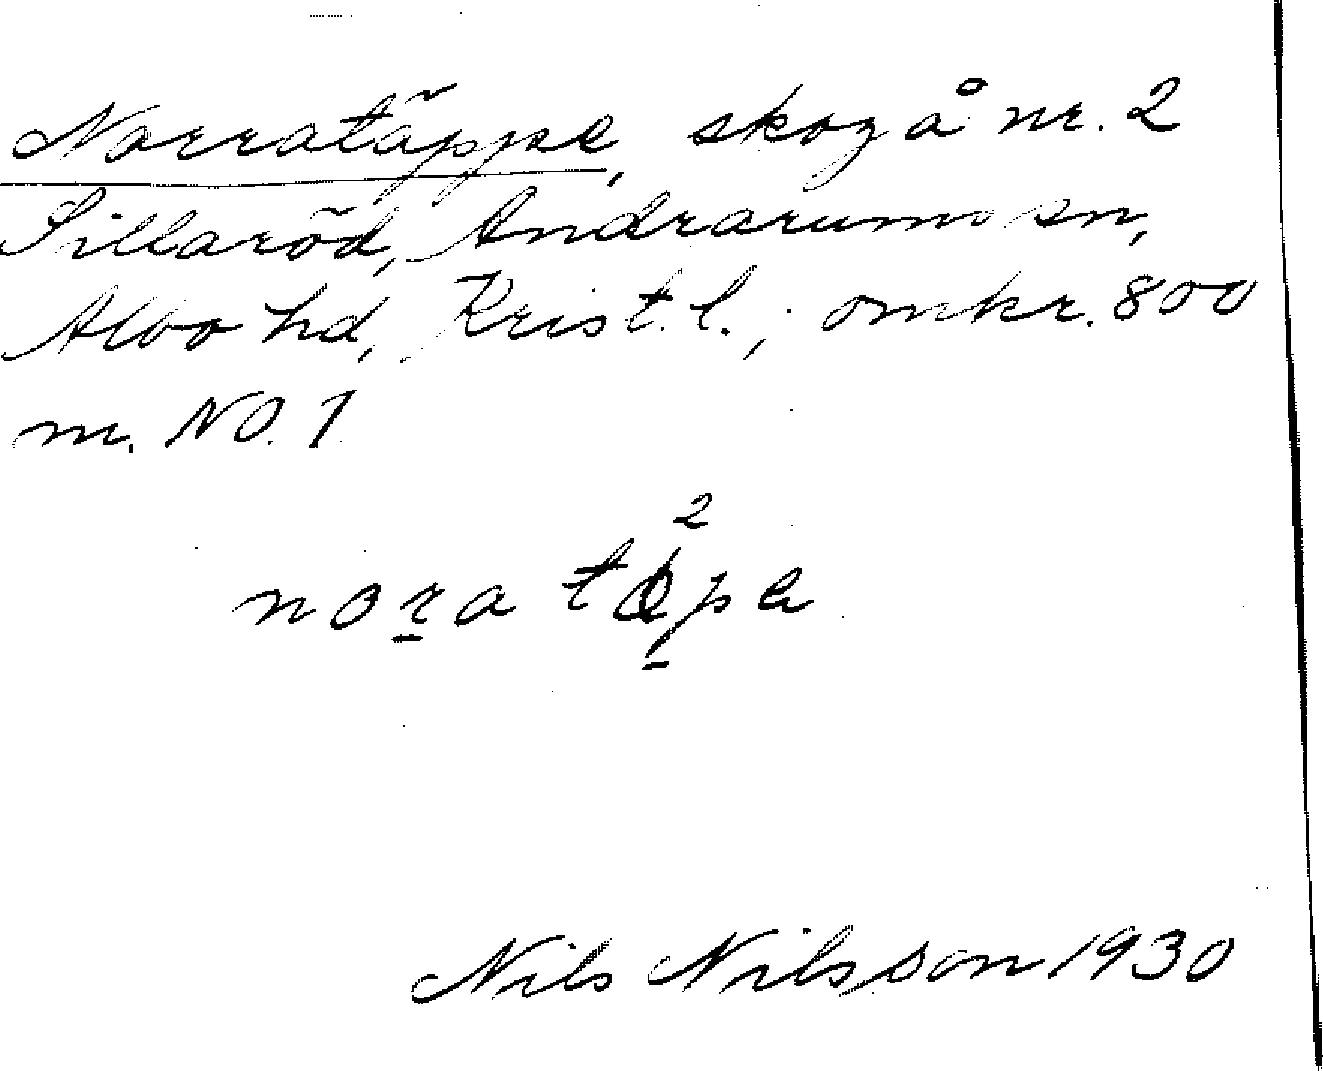 Norratäppe, skog å nr. 2
Sillaröd, Andrarums sn,
Albo hd, Krist. l.; omkr. 800
m. NO. 1
2
Nils Nilsson 1930